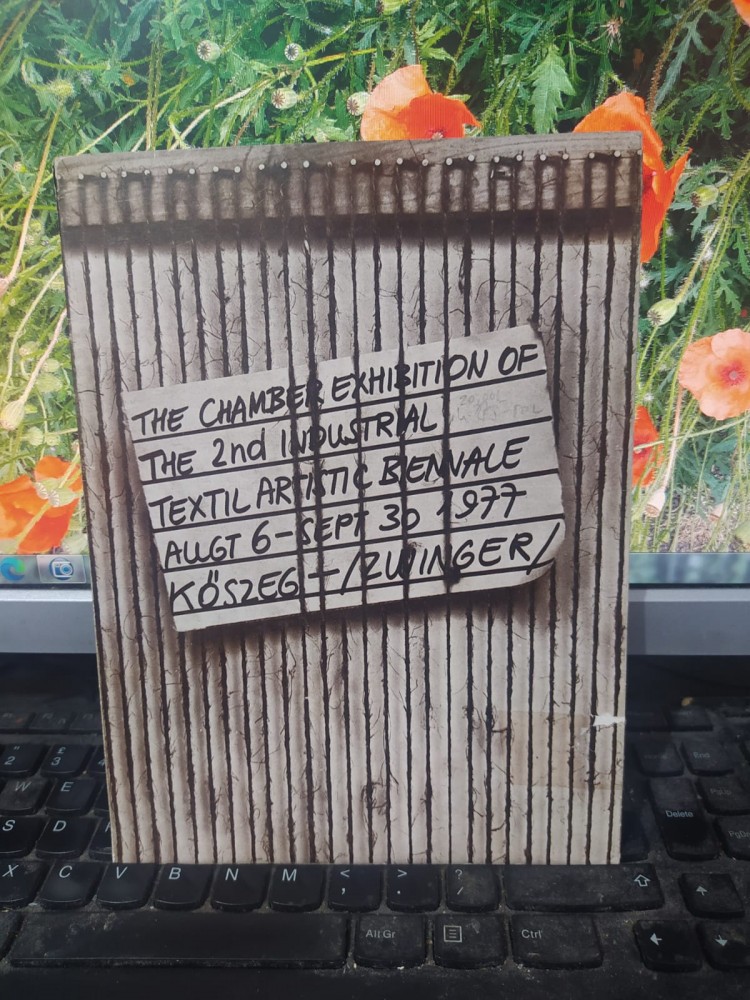 THE CHAMBER EXHIBITION OF
THE 2nd INDUSTRIAL
TEXTIL ARTISTIC BIENNALE
AUGT 6-SEPT 30 1977
KŐSZEG-/ZWINGER/
2
£
3
4
W
E
S
D
X
C
V
B
N
M
<
,
>
.
?
/
Alt Gr
Ctrl
Delete
End